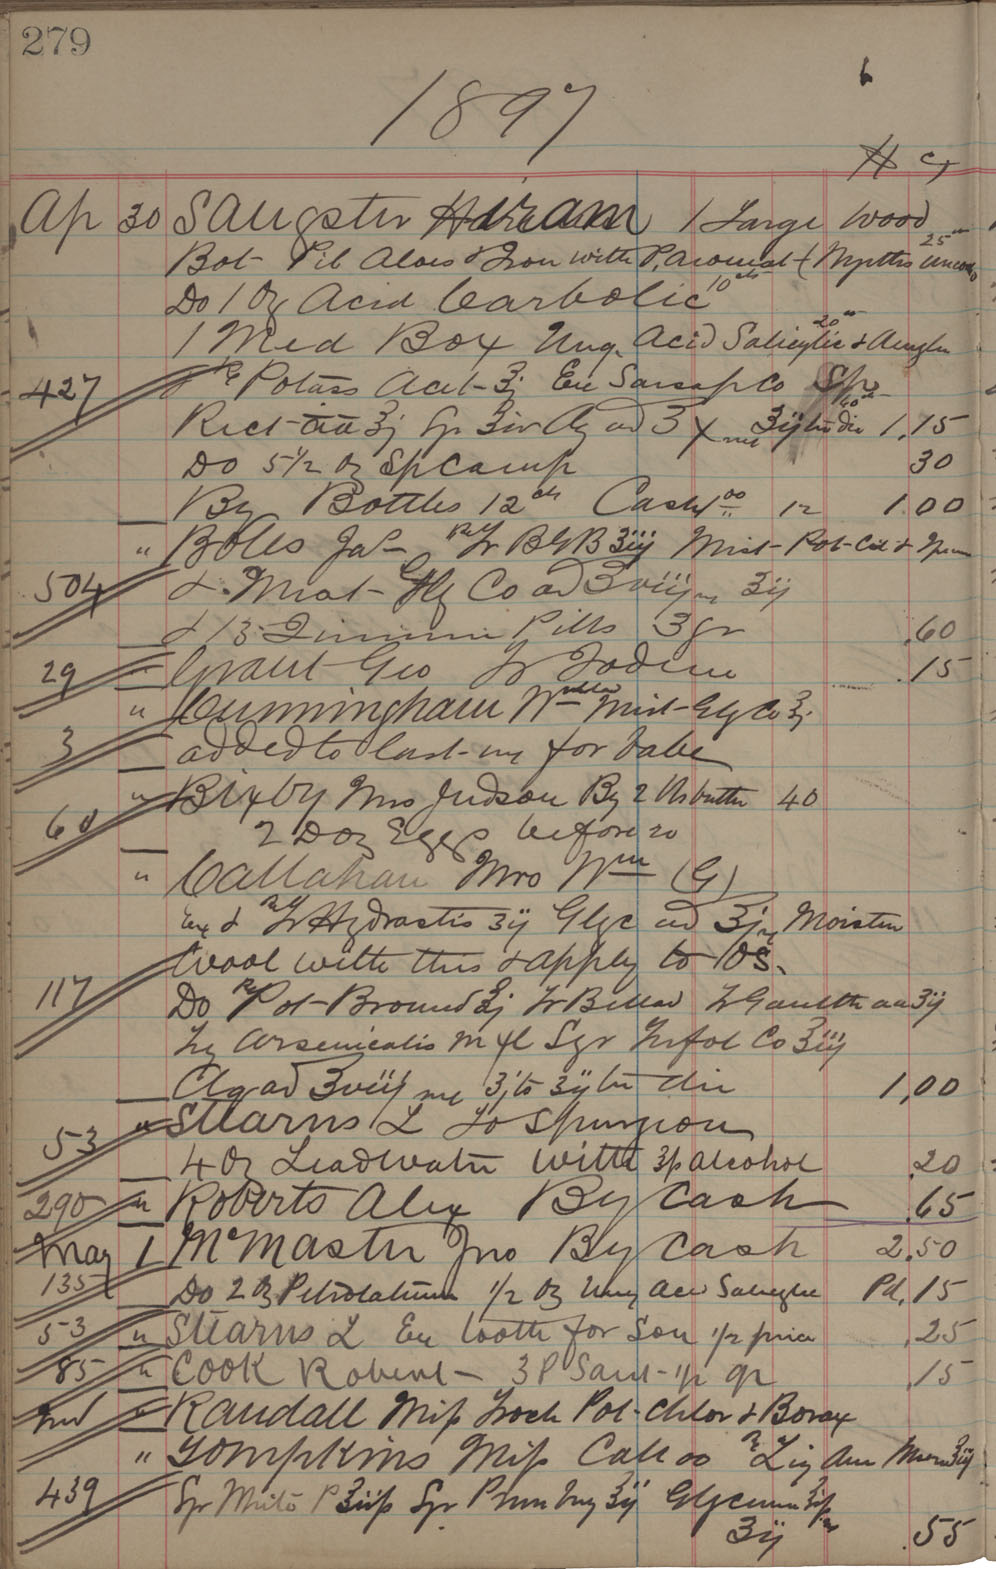 279
1897
6
$ ct
Ap 30 Sangster Hiram 1 Large Wood
Bot Pil Aloes & Iron with P, Aromat ( 25
Do 1 Oz Acid Carbolic 10 cts
1 Med Box Ung. Acid Salicylic 20 &
427 Potass Acet ʒj Ext Sarsap Co Sp
Rect aa ʒj Syr ʒiv Aq ad ʒx 1.15
Do 5 1/2 Oz Sp Camp 30
By Bottles 12 cts Cash 1.00 12 1.00
" Boles Jas Mist Pot Cit &
504 & Mist Gly Co ad ʒviij ʒij
& 13 Quinine Pills 3 gr .60
29 " Grant Geo Tr Iodine .15
" Cunningham Wm Mist Gly Co ʒj
3 added to last for babe
" Bixby Mrs Judson By 2 lbs butter 40
60 2 Doz Eggs before 20
" Callahan Mrs Wm (G)
Ex & Tr Hydrastis ʒij Glyc ad ʒj Moisten
Wool with this & apply to OS.
117 Do Pot Bromid ʒj Tr Bellad Tr Gaulth aa ʒij
Arsenicalis m xl Syr Trifol Co ʒiij
Aq ad ʒviij ʒj to ʒij ter die 1,00
53 " Stearns L to Spurgeon
4 Oz Leadwater with alcohol 20
290 " Roberts Alex By Cash .65
May 1 McMaster Jno By Cash 2.50
135 Do 2 Oz Petrolatum 1/2 Oz Ung Acid Pd, 15
53 " Stearns L Ex tooth for Son 1/2 price .25
85 " Cook Robert 3 P Sant 1/2 gr .15
" Randall Miss Troch Pot Chlor & Borax
" Tompkins Miss Call 00 Liq Am
439 Syr Prun Virg ʒij Glycerin
ʒij .55